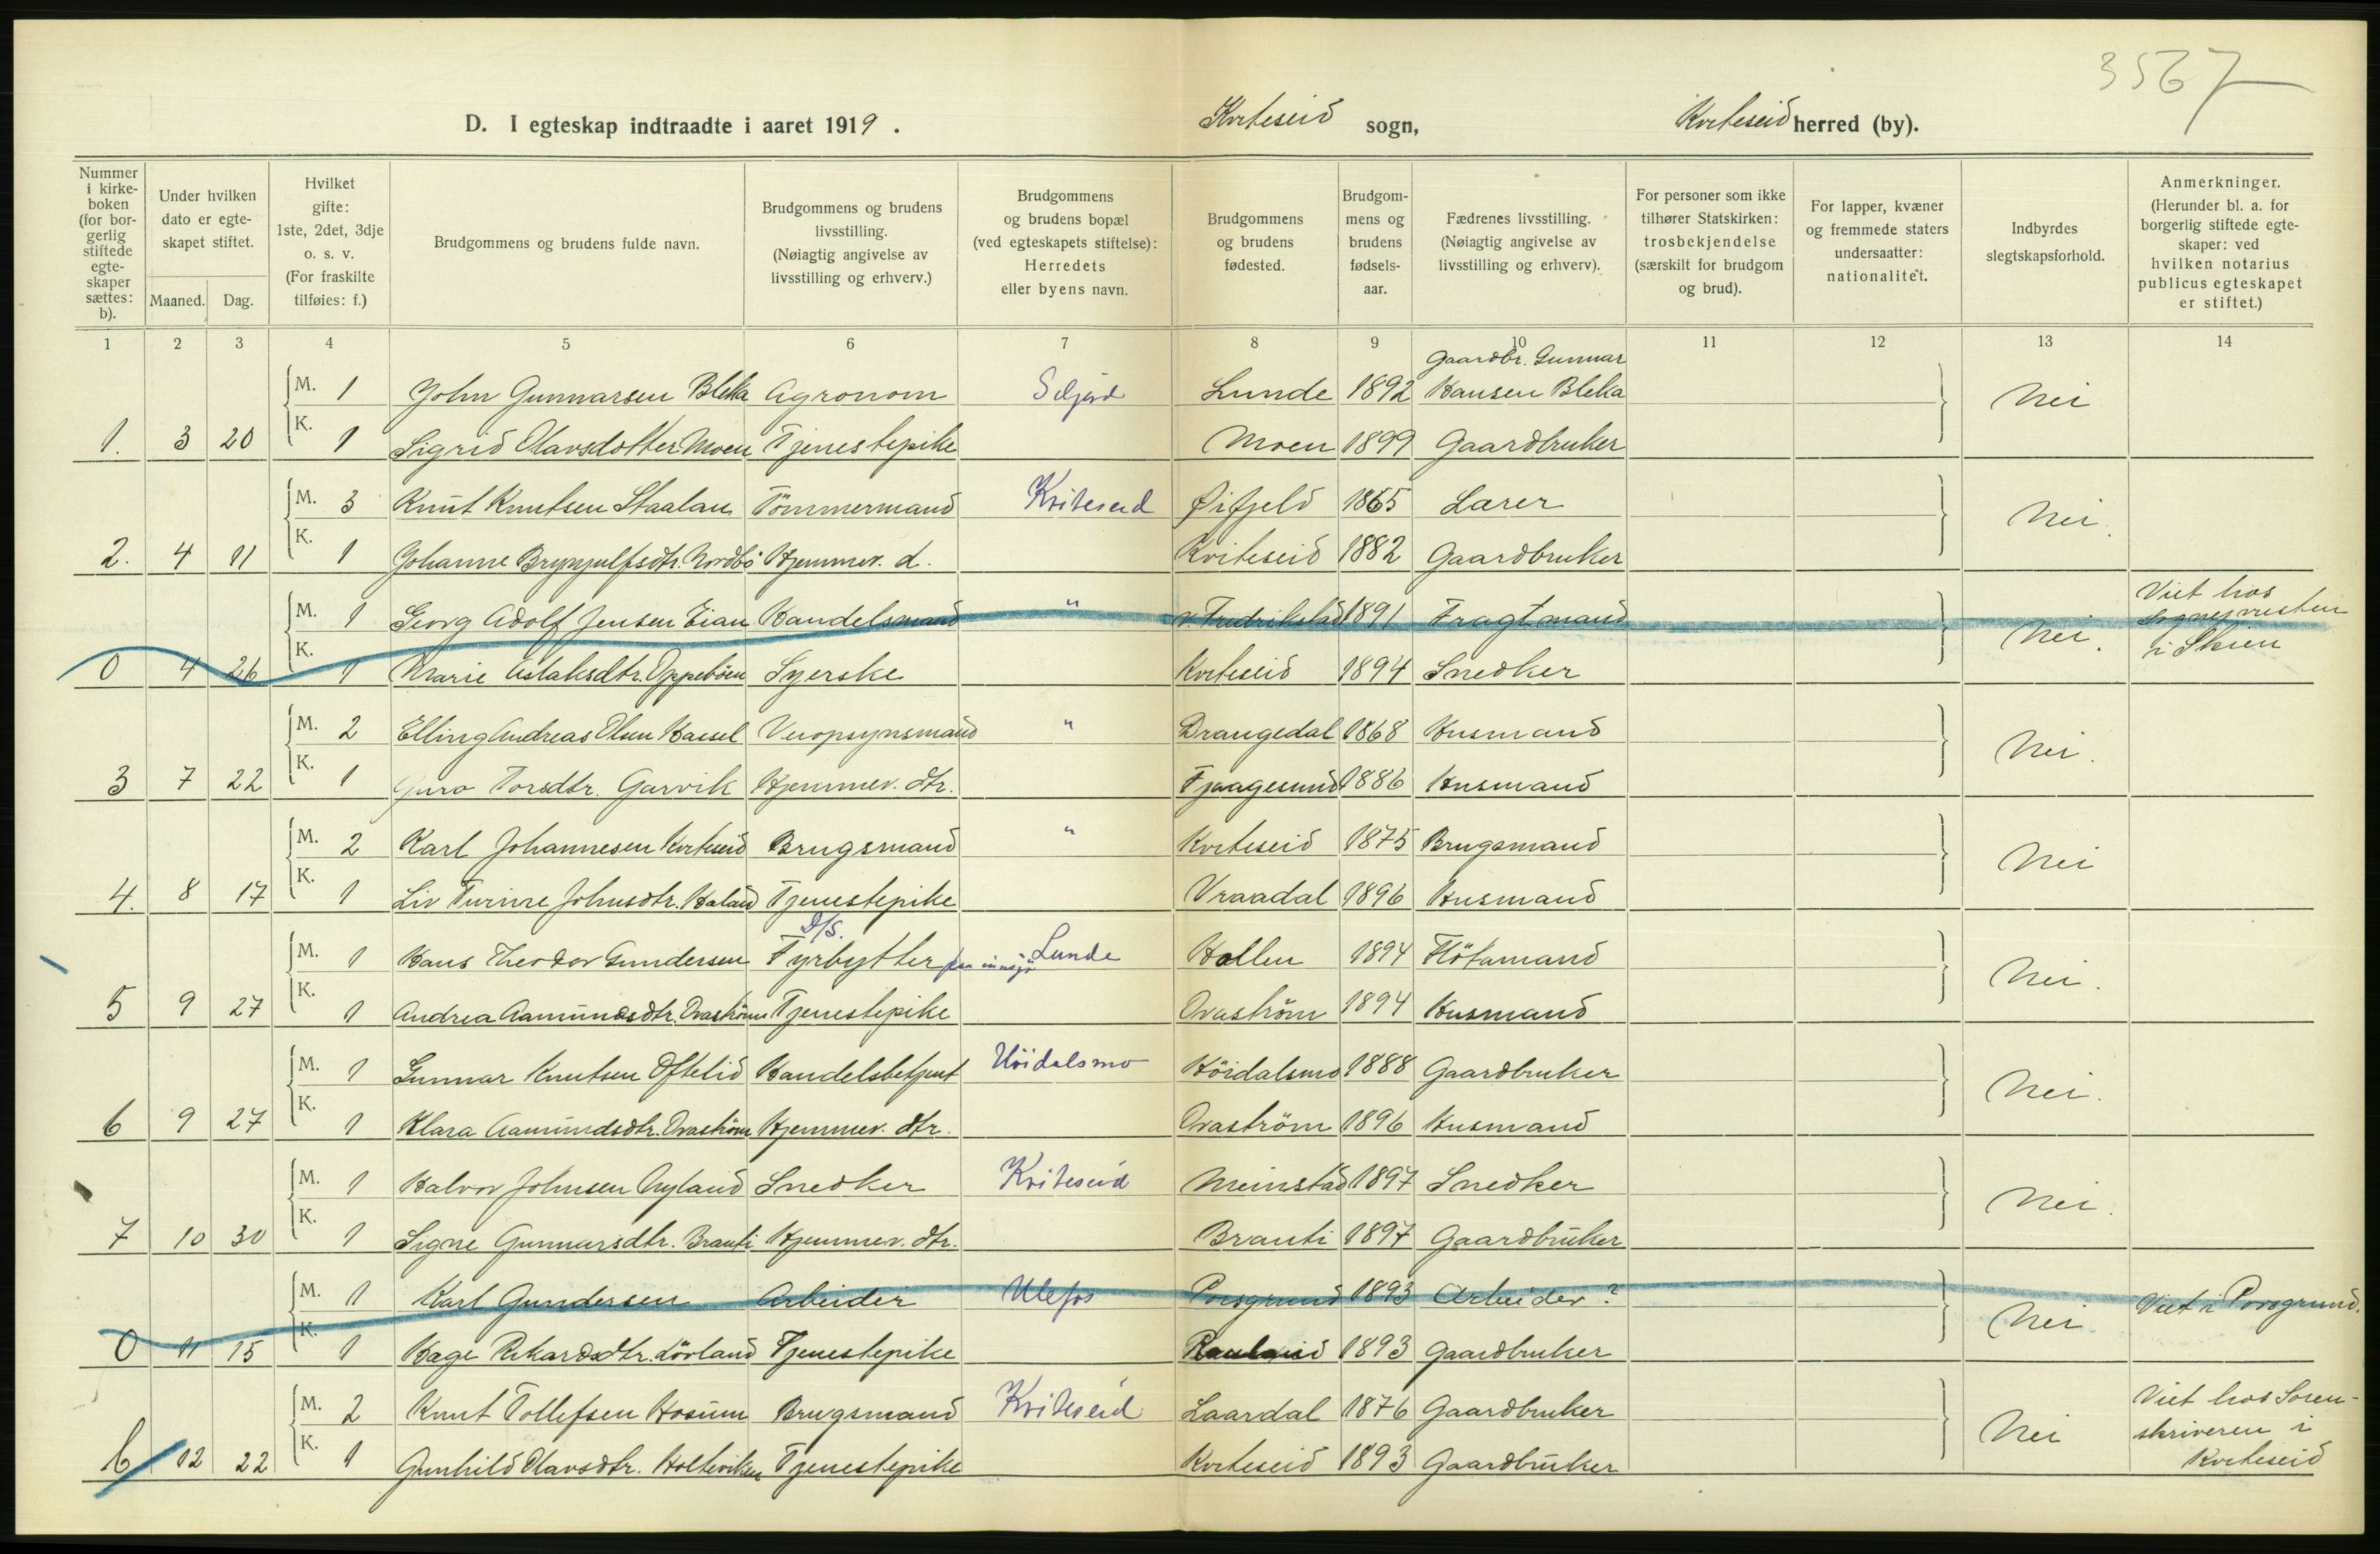 3567
D. I egteskap indtraadte i aaret 1919. Kviteseid sogn, Kviteseid herred (by).
Nummer i kirke-boken (for bor-gerlig stiftede egte-skaper sættes: b).
Under hvilken dato er egte-skapet stiftet.
Maaned. Dag.
Hvilket gifte: 1ste, 2det, 3dje o. s. v. (For fraskilte tilføies: f.)
Brudgommens og brudens fulde navn.
Brudgommens og brudens livsstilling. (Nøiagtig angivelse av livsstilling og erhverv.)
Brudgommens og brudens bopæl (ved egteskapets stiftelse): Herredets eller byens navn.
Brudgommens og brudens fødested.
Brudgom-mens og brudens fødsels-aar.
Fædrenes livsstilling. (Nøiagtig angivelse av livsstilling og erhverv).
For personer som ikke tilhører Statskirken: trosbekjendelse (særskilt for brudgom og brud).
For lapper, kvæner og fremmede staters undersaatter: nationalitet.
Indbyrdes slegtskapsforhold.
Anmerkninger. (Herunder bl. a. for borgerlig stiftede egte-skaper: ved hvilken notarius publicus egteskapet er stiftet.)
1 2 3 4 5 6 7 8 9 10 11 12 13 14
Gaardbr. Gunnar
M. 1 John Gunnarsen Bleka Agronom Seljord Lunde 1892 Hansen Bleka Nei
1. 3 20 K. 1 Sigrid Olavsdotter Moen Tjenestepike Moen 1899 Gaardbruker
M. 3 Knut Knutsen Staalan Tömmermand Kviteseid Øifjeld 1865 Lærer Nei.
2. 4 11 K. 1 Johanne Brynjulfsdtr. Nordbö Hjemmev. d. Kviteseid 1882 Gaardbruker
M. 1 Georg Adolf Jensen Eian Handelsmand " v. Fredrikstad 1891 Fragtmand Nei. Viet hos Sognepresten i Skien
0 4 26 K. 1 Marie Aslaksdtr. Oppeböen Syerske Kviteseid 1894 Snedker
M. 2 Elling Andreas Olsen Hassel Veiopsynsmand " Drangedal 1868 Husmand Nei.
3 7 22 K. 1 Guro Torsdtr. Garvik Hjemmev. dtr. Fjaagesund 1886 Husmand
M. 2 Karl Johannesen Kviteseid Brugsmand " Kviteseid 1875 Brugsmand Nei
4. 8 17 K. 1 Liv Turine Johnsdtr. Haland Tjenestepike Vraadal 1896 Husmand
D/S.
M. 1 Hans Theodor Gundersen Fyrbytter paa innsjö Lunde Hollen 1894 Flötamand Nei.
5 9 27 K. 1 Andrea Aamundsdtr. Ovaström Tjenestepike Ovaström 1894 Husmand
M. 1 Gunnar Knutsen Oftelid Handelsbetjent Höidalsmo Höidalsmo 1888 Gaardbruker Nei.
6 9 27 K. 1 Klara Aamundsdtr. Ovaström Hjemmev. dtr. Ovaström 1896 Husmand
M. 1 Halvor Johnsen Nyland Snedker Kviteseid Meinstad 1897 Snedker Nei.
7 10 30 K. 1 Signe Gunnarsdtr. Brauti Hjemmev. dtr. Brauti 1897 Gaardbruker
M. 1 Karl Gundersen Arbeider Ulefos Porsgrund 1893 Arbeider? Nei. Viet i Porsgrund.
0 11 15 K. 1 Rikardsdtr. Lövland Tjenestepike 1893 Gaardbruker
M. 2 Knut Tollefsen Hosum Brugsmand Kviteseid Laardal 1876 Gaardbruker Nei Viet hos Soren-skriveren i Kviteseid
b 12 22 K. 1 Gunhild Olavsdtr. Holteviken Tjenestepike Kviteseid 1893 Gaardbruker